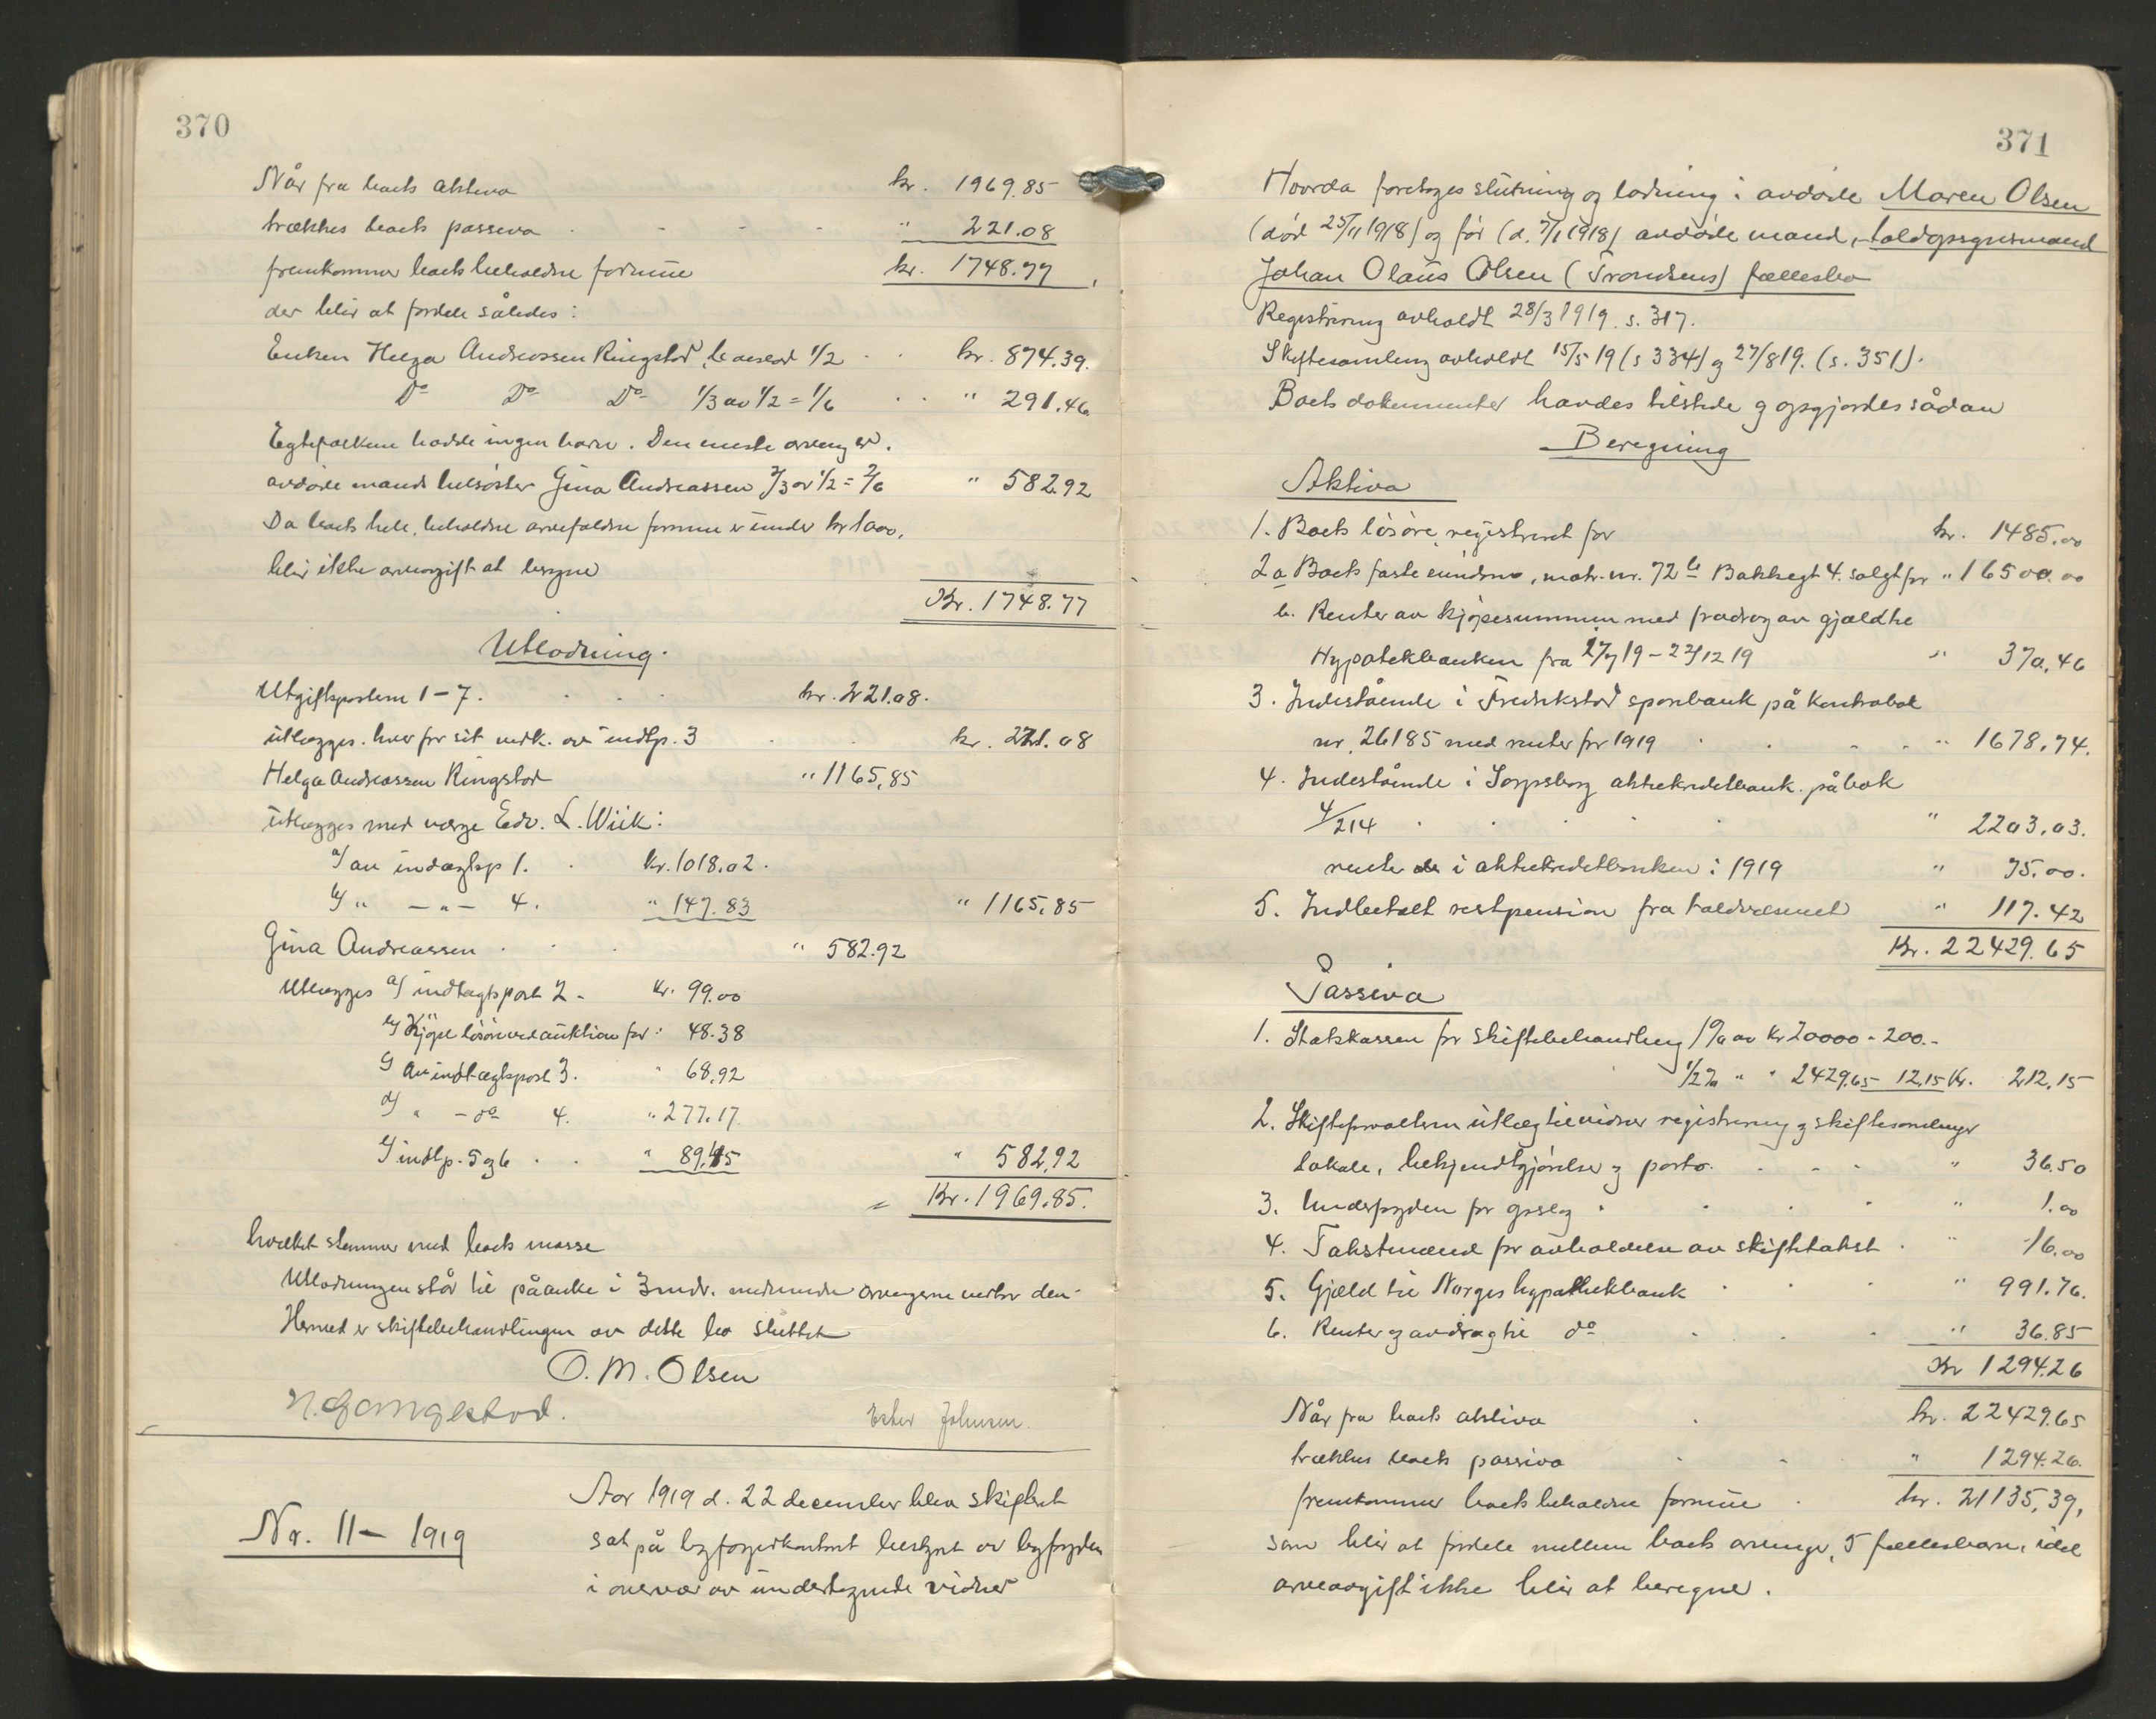 370
Når fra boets aktiva kr. 1969.85
trækkes boets passiva " 221.08
fremkommer boets beholdne formue kr. 1748.77,
der blir at fordele således:
Enken Helga Andreassen Ringstad, boeslod 1/2 kr. 874.39.
Do Do Do 1/3 av 1/2 = 1/6 " 291.46
Egtefolkene hadde ingen barn. Den eneste arving er.
avdøde mands helsøster Gina Andreassen 2/3 av 1/2 = 2/6 " 582.92
Da boets hele, beholdne arvefaldne formue er under kr 1000,
blir ikke arveavgift at beregne
Kr. 1748.77
Utlodning.
Utgiftsposterne 1-7. kr. 221.08.
utlægges hver for sit vedk. av indtp. 3 kr. 221.08
Helga Andreassen Ringstad " 1165,85
utlægges med værge Edv. L. Wiik:
a/ av indtægtsp 1. kr. 1018.02.
b/ " -"- 4. " 147.83 " 1165.85
Gina Andreassen " 582.92
Utlægges a/ indtægtspost 2 - kr. 99.00
b/ Kjøpt løsøre ved auktion for: 48.38
c/ av indtægtspost 3. " 68,92
d/ " - do 4. " 277.17.
e/ indtp. 5 og 6 " 89,45 " 582,92
= Kr. 1969.85.
hvilket stemmer med boets masse
Utlodningen står til påanke i 3 mdr. medmindre arvingerne vedtar den.
Hermed er skiftebehandlingen av dette bo sluttet
O. M. Olsen
N. Gangestad. Ester Johnsen.
Nr. 11 - 1919
Aar 1919 d. 22 december blev skifteret
sat på byfogedkontoret bestyret av byfogden
i overvær av undertegnede vidner
371
Hvorda foretoges slutning og lodning i avdøde Maren Olsen
(død 25/11 1918) og før (d. 7/1 1918) avdøde mand, toldopsynsmand
Johan Olaüs Olsen (Trondsens) fællesbo
Registrering avholdt 28/3 1919. s. 317.
Skiftesamling avholdt 15/5 19 (s 334) og 27/8 19. (s. 351).
Boets dokumenter havdes tilstede og opgjordes sådan
Beregning
Aktiva
1. Boets løsøre, registreret for kr. 1485.00
2 a Boets faste eiendom, matr. nr. 72 b Bakkegt 4. solgt for " 16500.00
b. Renter av kjøpesummen med fradrag av gjæld til
Hypotekbanken fra 27/7 19 - 22/12 19 " 370,46
3. Indestående i Fredrikstad sparebank på kontrabok
nr. 26185 med renter for 1919 " 1678,74.
4. Indestående i Sarpsborg aktiekreditbank på bok
4/214 " 2203,03.
renter i aktiekreditbanken i 1919 " 75.00.
5. Indbetalt restpension fra toldvæsenet " 117.42
Kr. 22429.65
Passiva
1. Statskassen for skiftebehandling 1% av kr 20000 - 200.-
1/2% " " 2429,65 12,15 kr. 212,15
2. Skifteforvalteren utlæg til vidner registrering og skiftesamlinger
lokale, bekjendtgjørelse og porto. " 36.50
3. Underfogden for opslag " 1.00
4. Takstmænd for avholdelse av skiftetakst " 16.00
5. Gjæld til Norges hypothekbank " 991.76.
6. Renter og avdrag til do " 36.85
Kr 1294.26
Når fra boets aktiva kr. 22429.65
trækkes boets passiva " 1294.26.
fremkommer boets beholdne formue kr. 21135,39,
som blir at fordele mellem boets arvinger, 5 fællesbarn, idet
arveavgift ikke blir at beregne.